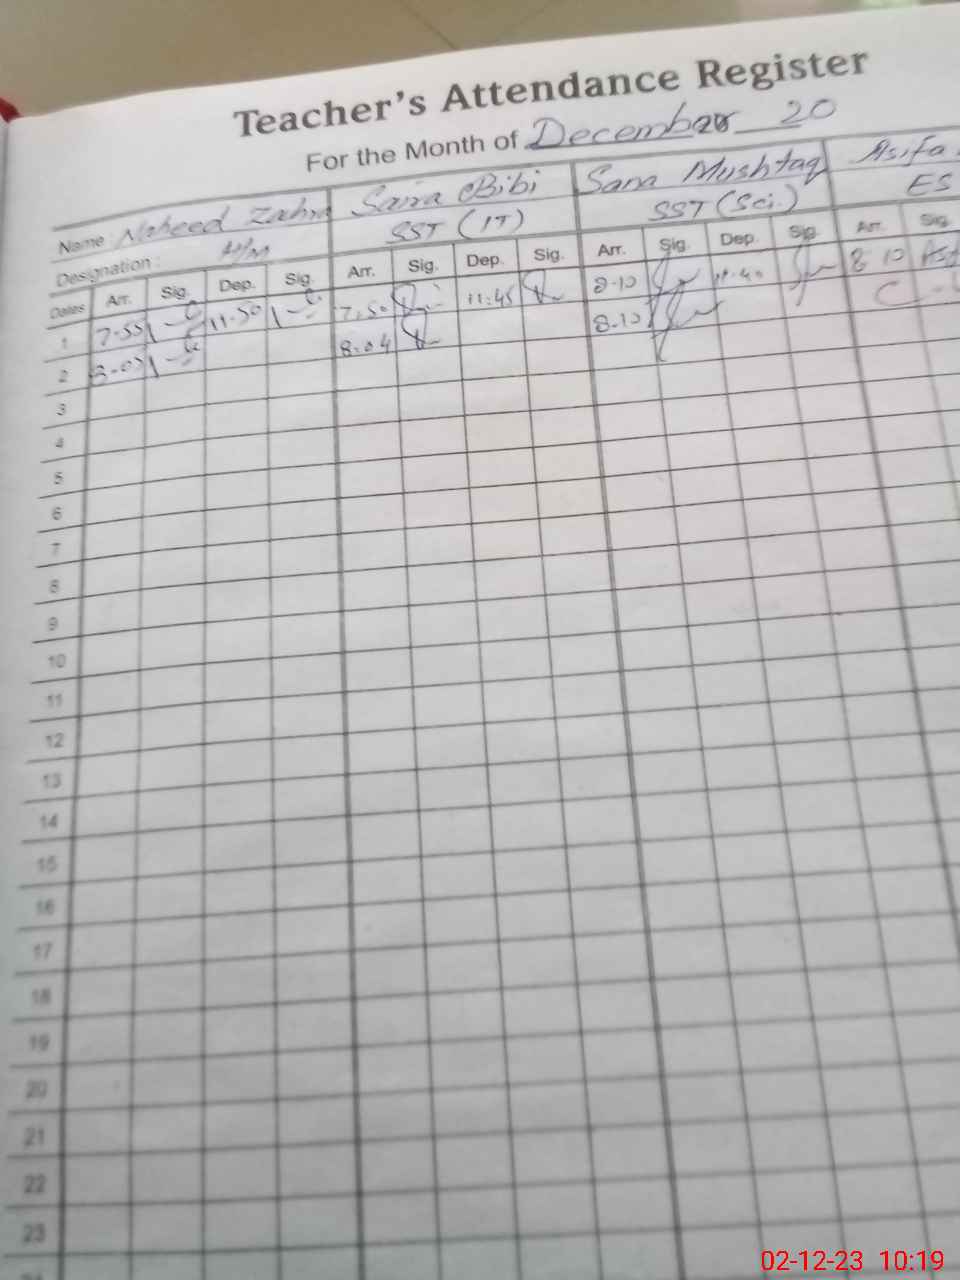 Teacher's Attendance Register
For the Month of December 20
Name: Naheed Zahra Saira Bibi Sara Mushtaq Asifa
Designation: H/M SST (IT) SST (Sci.) ES
Dates Arr. Sig. Dep. Sig. Arr. Sig. Dep. Sig. Arr. Sig. Dep. Sig. Arr. Sig.
1 7.55 11.50 7.50 11:45 8-10 11.40 8 10
2 8.04 8-10 C
3
4
5
6
7
8
9
10
11
12
13
14
15
16
17
18
19
20
21
22
23
02-12-23 10:19